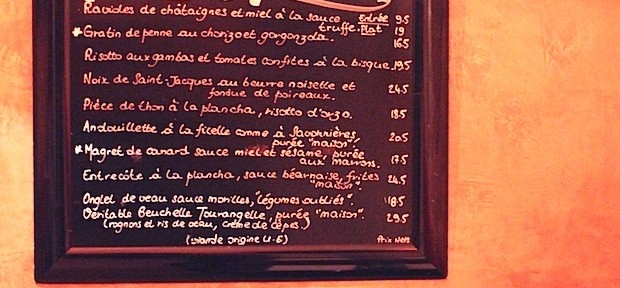 Ravioles de châtaignes et miel à la sauce Entrée 9.5
truffe. Plat 19
* Gratin de penne au chorizo et gorgonzola. 16.5
Risotto aux gambas et tomates confites à la bisque. 19.5
Noix de Saint-Jacques au beurre noisette et 24.5
fondue de poireaux.
Pièce de thon à la plancha, risotto d'orzo. 18.5
Andouillette à la ficelle comme à Savonnières, 20.5
purée "maison".
* Magret de canard sauce miel et sésame, purée 17.5
aux marrons.
Entrecôte à la plancha, sauce béarnaise, frites 24.5
"maison".
Onglet de veau sauce morilles, "légumes oubliés". 18.5
Véritable Beuchelle Tourangelle, purée "maison". 29.5
(rognons et ris de veau, crème de cèpes.)
(viande origine U.E) Prix Nets